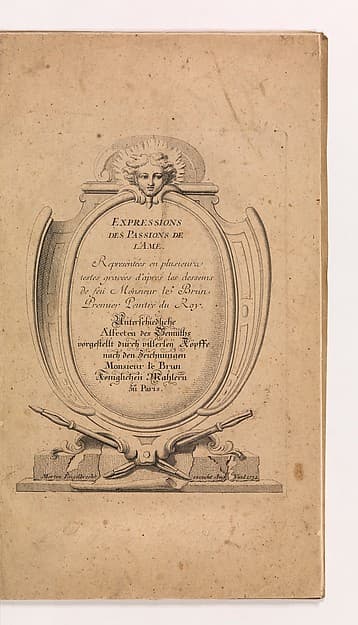 EXPRESSIONS
DES PASSIONS DE
L'AME.
Representées en plusieurs
testes gravées d'apres les desseins
de feu Monsieur le Brun
Premier Peintre du Roy.
Unterschiedliche
Affecten des Gemüths
vorgestellt durch
nach den Zeichnungen
Monsieur le Brun
Königlichen Mahlern
zu Paris.
Martin Engelbrecht excudit Aug. Vind. 1732